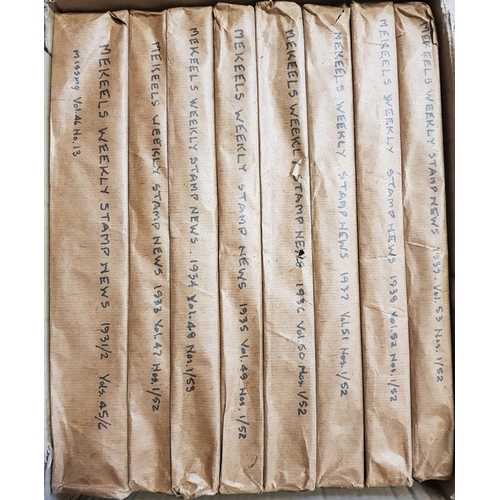 MEKEELS WEEKLY STAMP NEWS 1931/2 Vols. 45/6
Missing Vol 46 No. 13
MEKEELS WEEKLY STAMP NEWS 1933 Vol. 47 Nos. 1/52
MEKEELS WEEKLY STAMP NEWS. 1934 Vol. 48 Nos. 1/53
MEKEELS WEEKLY STAMP NEWS 1935 Vol. 49 Nos. 1/52
MEKEELS WEEKLY STAMP NEWS 1936 Vol. 50 Nos 1/52
MEKEELS WEEKLY STAMP NEWS 1937 Vol. 51 Nos. 1/52
MEKEELS WEEKLY STAMP NEWS 1938 Vol. 52 Nos. 1/52
MEKEELS WEEKLY STAMP NEWS 1939. Vol. 53 Nos. 1/52